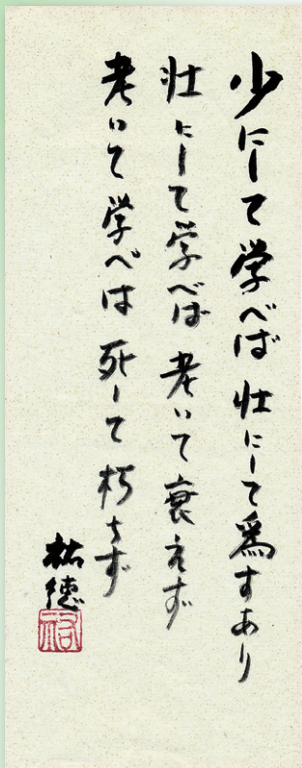 少にして学べば 壮にして為すあり
壮にして学べば 老いて衰えず
老いて学べば 死して朽ちず
祐徳